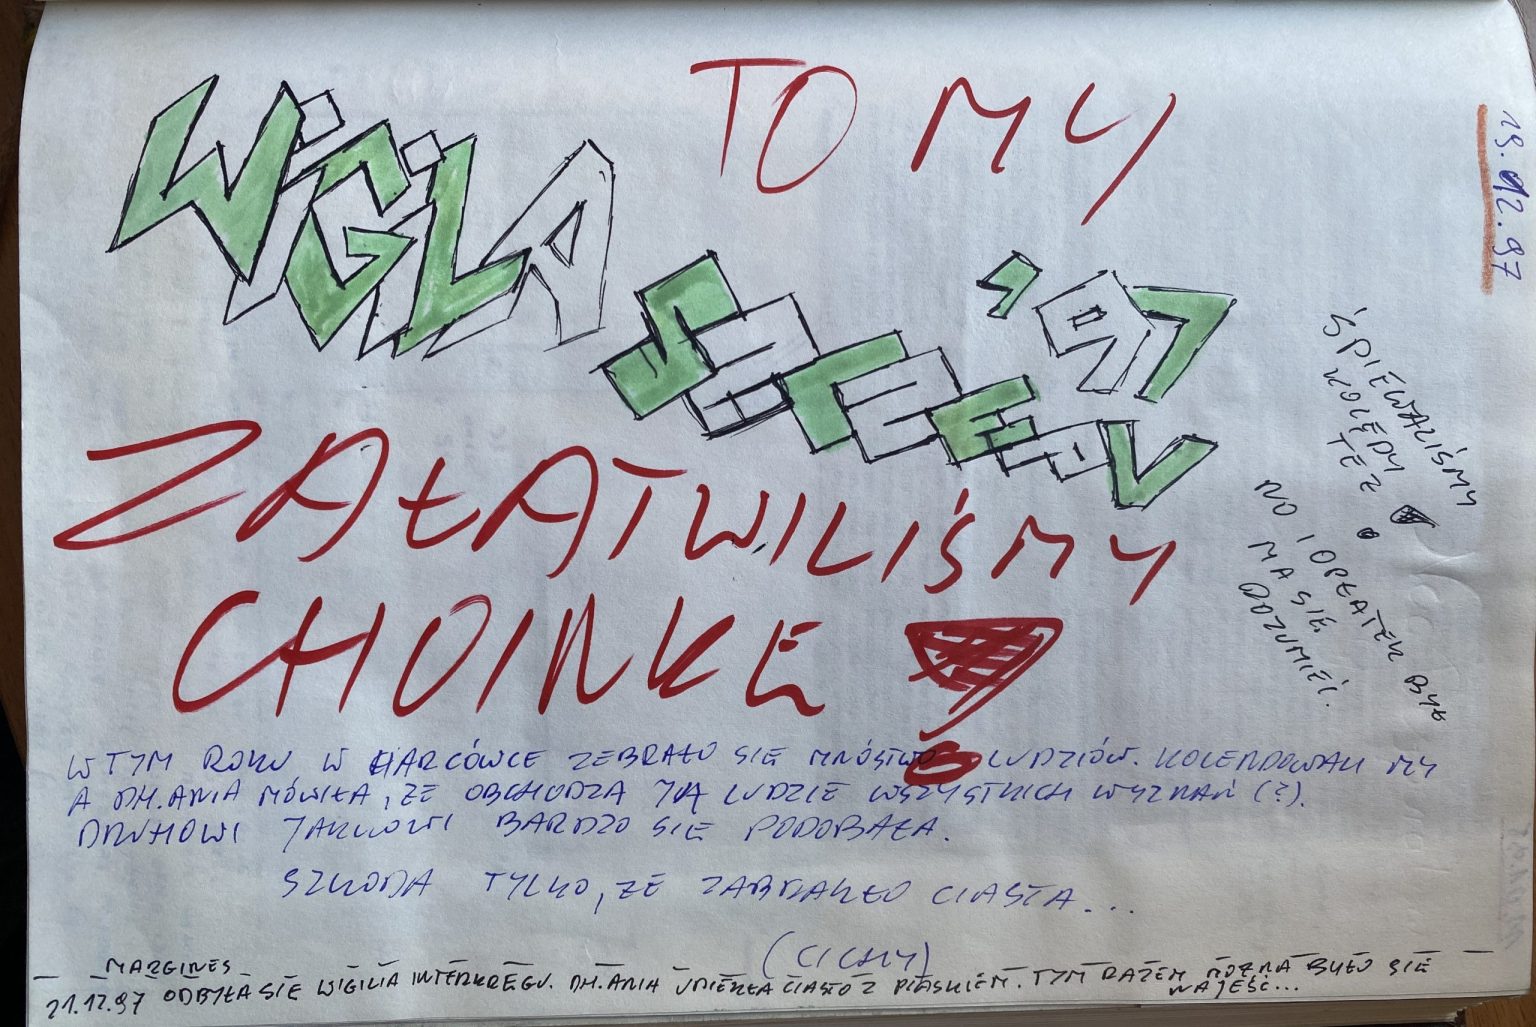 19.12.97
TO MY
WiGiLiA
SZCZEPU
'97
ZAŁATWILIŚMY
CHOINKĘ!
ŚPIEWALIŚMY
KOLĘDY
TEŻ!
NO I OPŁATEK BYŁ
MA SIĘ
ROZUMIEĆ.
W TYM ROKU W HARCÓWCE ZEBRAŁO SIĘ MNÓSTWO LUDZIÓW. KOLENDOWALI MY
A DH. ANIA MÓWIŁA, ŻE OBCHODZĄ JĄ LUDZIE WSZYSTKICH WYZNAŃ (?).
DRUHOWI BARDZO SIĘ PODOBAŁA.
SZKODA TYLKO, ŻE ZABRAKŁO CIASTA...
(CICHY)
MARGINES
21.12.97 ODBYŁA SIĘ WIGILIA INTERKRĘGU. DH. ANIA UPIEKŁA CIASTO Z PIASKIEM. TYM RAZEM MOŻNA BYŁO SIĘ
NAJEŚĆ...